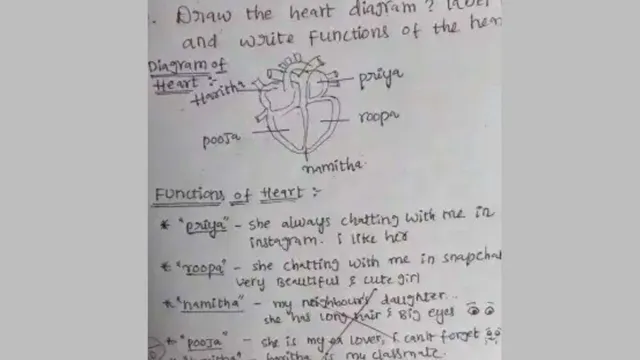 . Draw the heart diagram? label
and write functions of the hea
Diagram of
Heart :-
Haritha
priya
roopa
pooja
namitha
Functions of Heart :-
* "priya" - she always chatting with me in
instagram. i like her
* "roopa" - she chatting with me in snapchat
very Beautiful & cute girl
* "namitha" - my neighbour's daughter..
she has long hair & Big eyes
* "pooja" - she is my ex lover, i can't forget
haritha is my classmate.